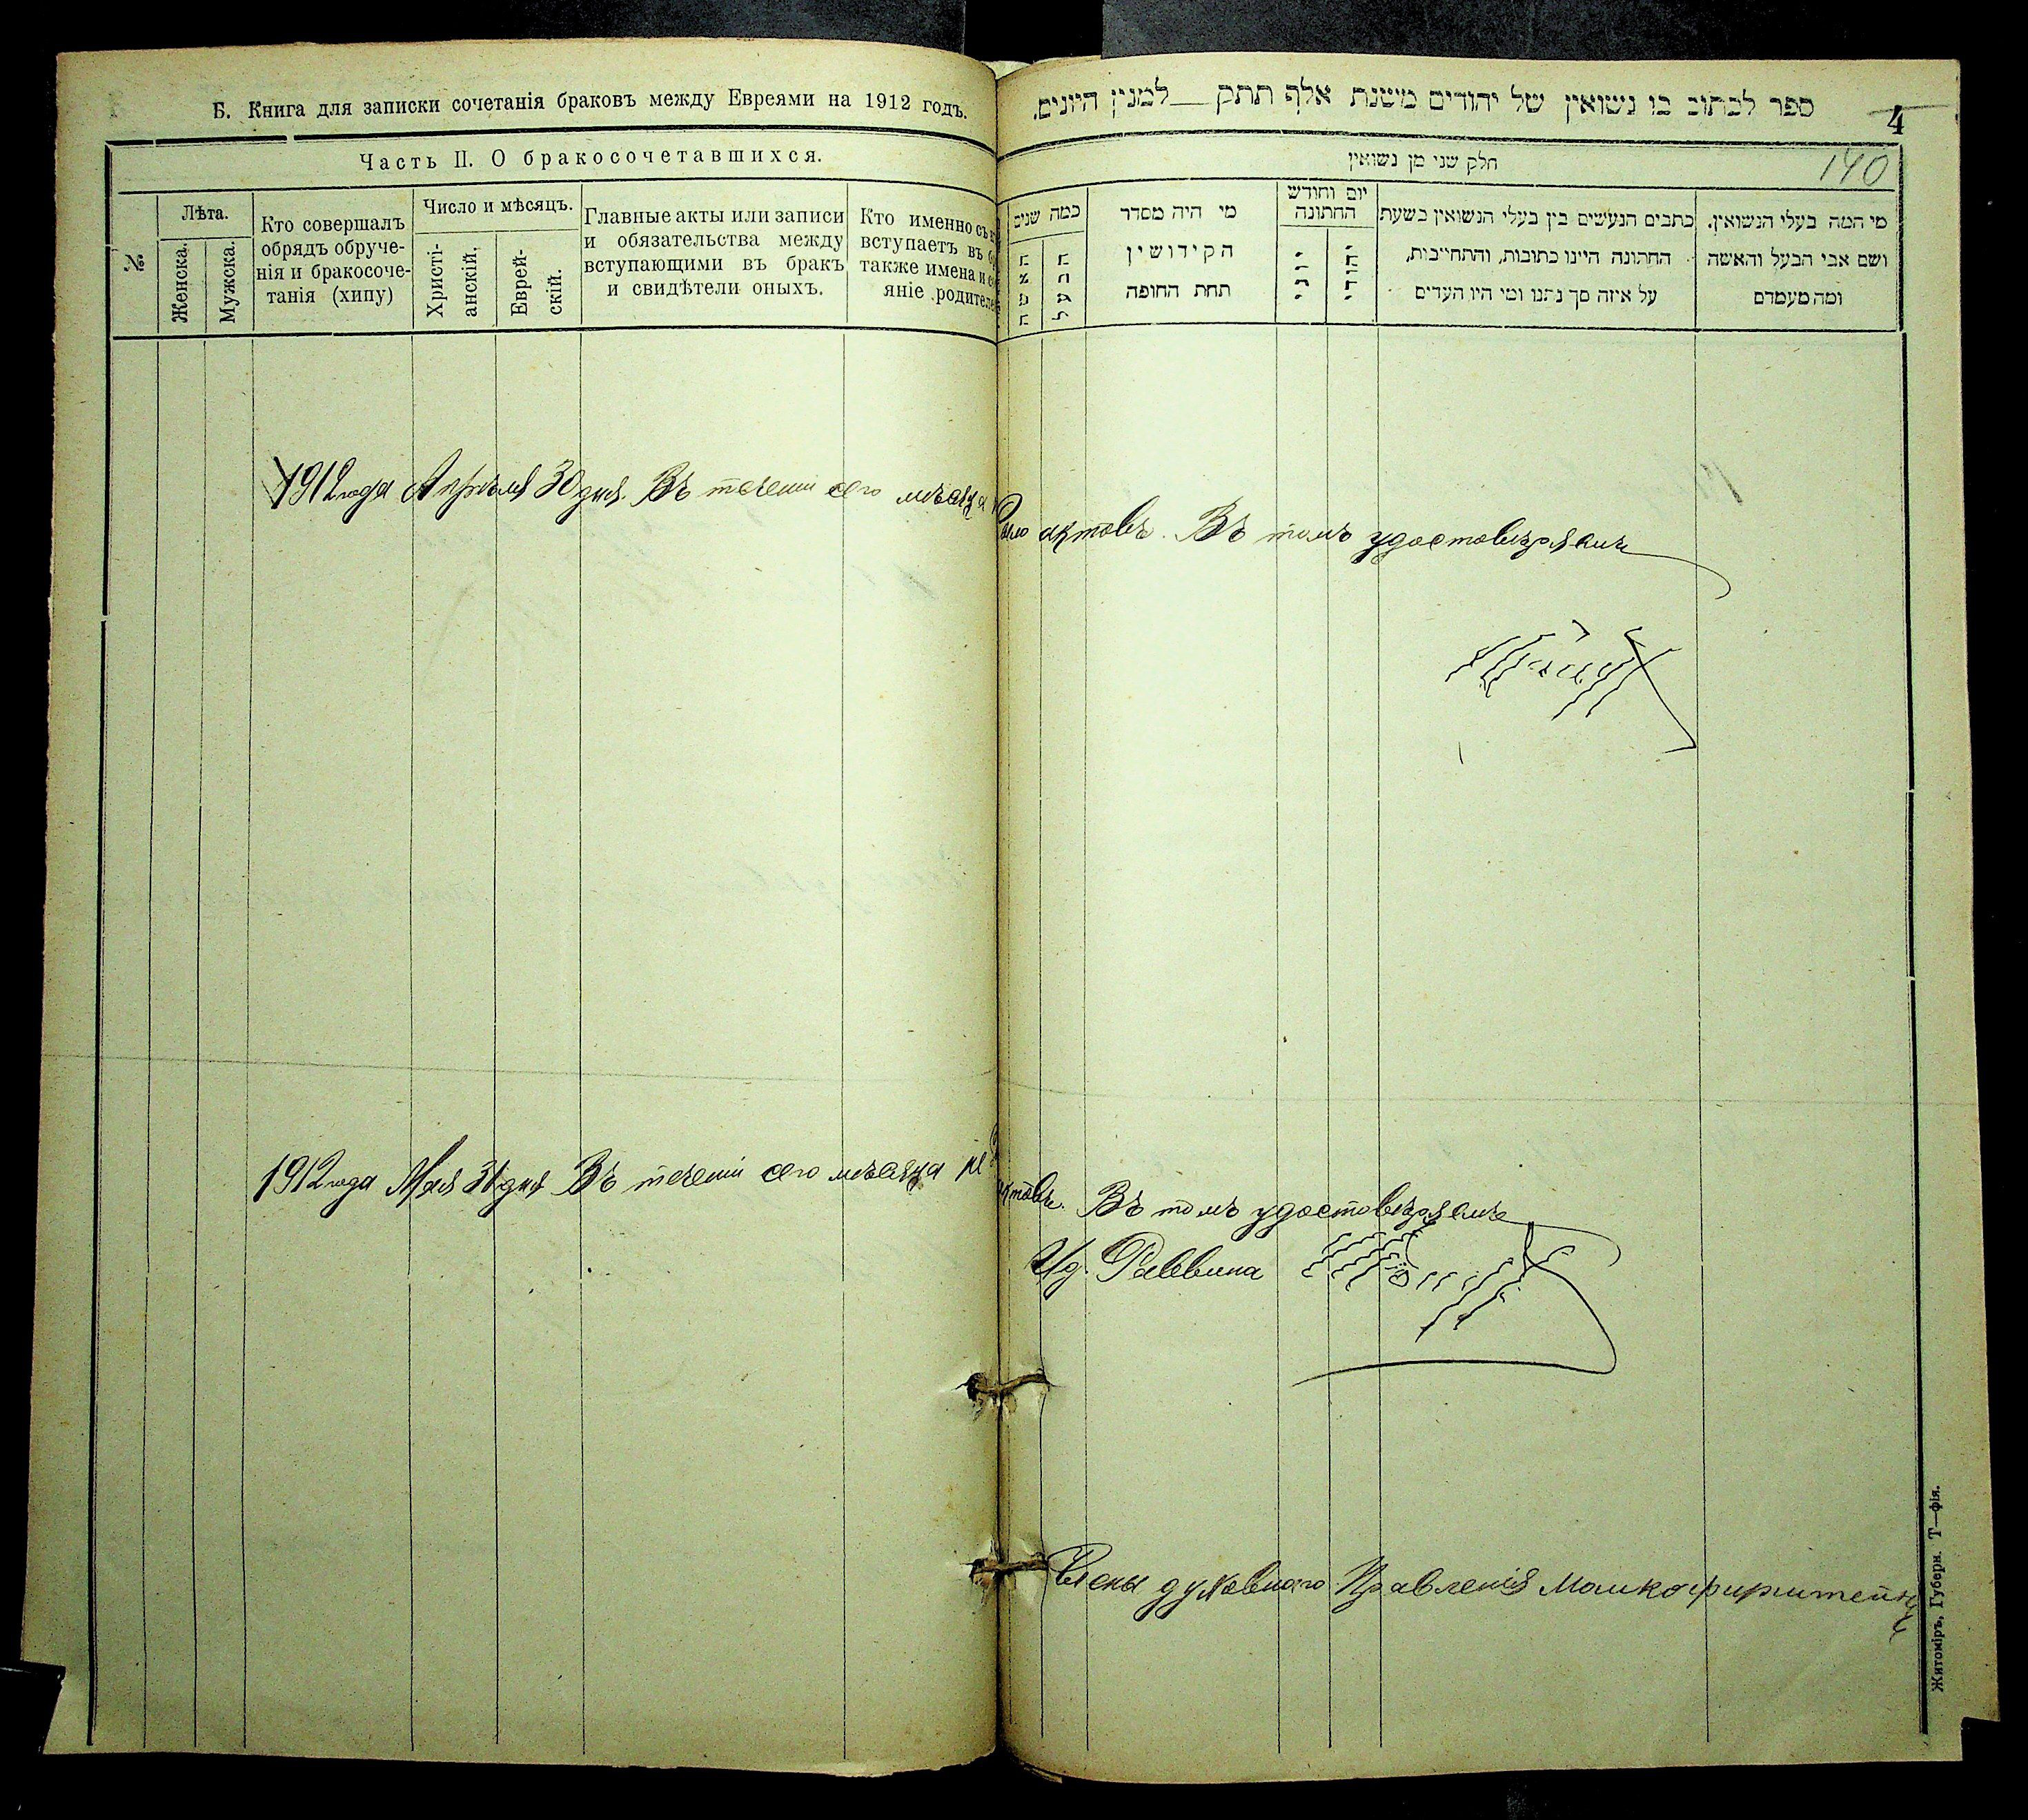 Б. Книга для записки сочетанія браковъ между Евреями на 1912 годъ.
Часть II. О бракосочетавшихся.
№
Лѣта.
Женска.
Мужска.
Кто совершалъ
обрядъ обруче-
нія и бракосоче-
танія (хипу)
Число и мѣсяцъ.
Христі-
анскій.
Еврей-
скій.
Главные акты или записи
и обязательства между
вступающими въ бракъ
и свидѣтели оныхъ.
Кто именно съ
вступаетъ въ
также имена и
яніе родителе
1912 года Апрѣля 30 дня. Въ теченіи сего мѣсяца
1912 года Мая 31 дня Въ теченіи сего мѣсяца не
ספר לכתוב בו נשואין של יהודים משנת אלף תתק __ למנין היונים.
4
140
חלק שני מן נשואין
כמה שנים
האשה
הבעל
מי היה מסדר
הקידושין
תחת החופה
יום וחודש
החתונה
יוני
יהודי
כתבים הנעשים בין בעלי הנשואין בשעת
החתונה היינו כתובות, והתחייבות,
על איזה סך נתנו ומי היו העדים
מי המה בעלי הנשואין.
ושם אבי הבעל והאשה
ומה מעמדם
было актовъ. Въ томъ удостовѣряемъ
актовъ. Въ томъ удостовѣряемъ
И д. Раввина
Члены духовнаго Правленія
Житоміръ, Губерн. Т—фія.